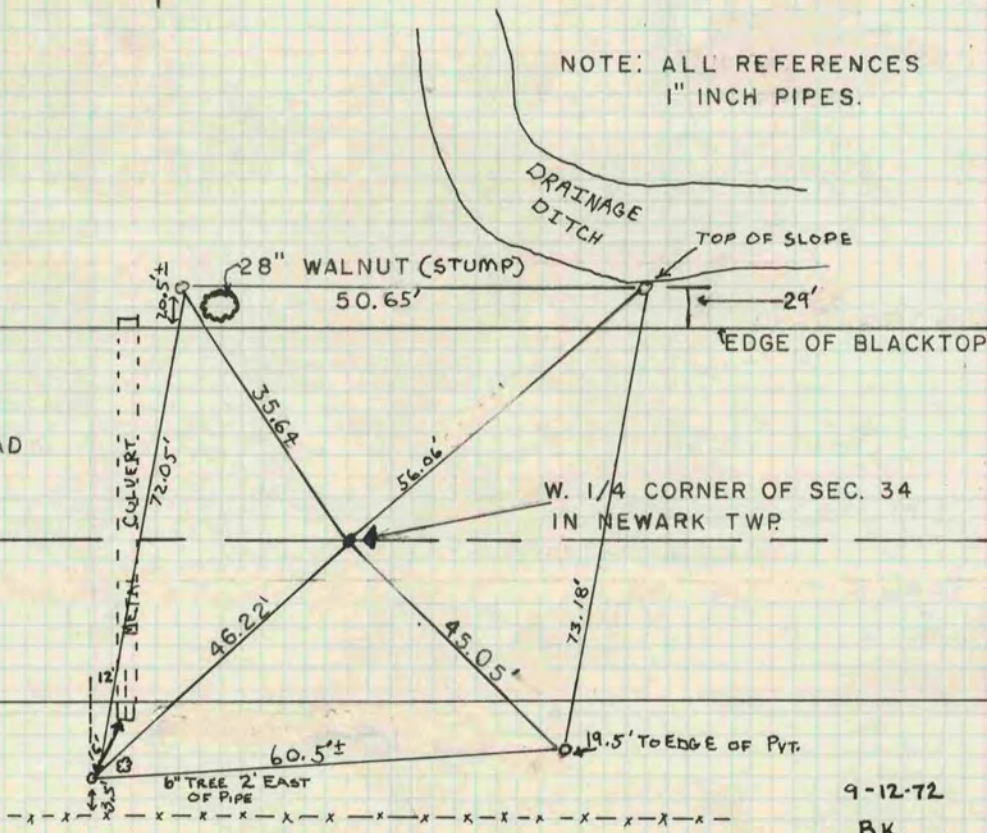 NOTE: ALL REFERENCES
1" INCH PIPES.
DRAINAGE
DITCH
TOP OF SLOPE
28" WALNUT (STUMP)
50.65'
20.5'±
29'
EDGE OF BLACKTOP
35.64
56.06'
AD
METAL CULVERT
72.05'
W. 1/4 CORNER OF SEC. 34
IN NEWARK TWP.
73.18'
46.22'
45.05'
12'
60.5'±
19.5' TO EDGE OF PVT.
6" TREE 2' EAST
OF PIPE
9-12-72
B.K.